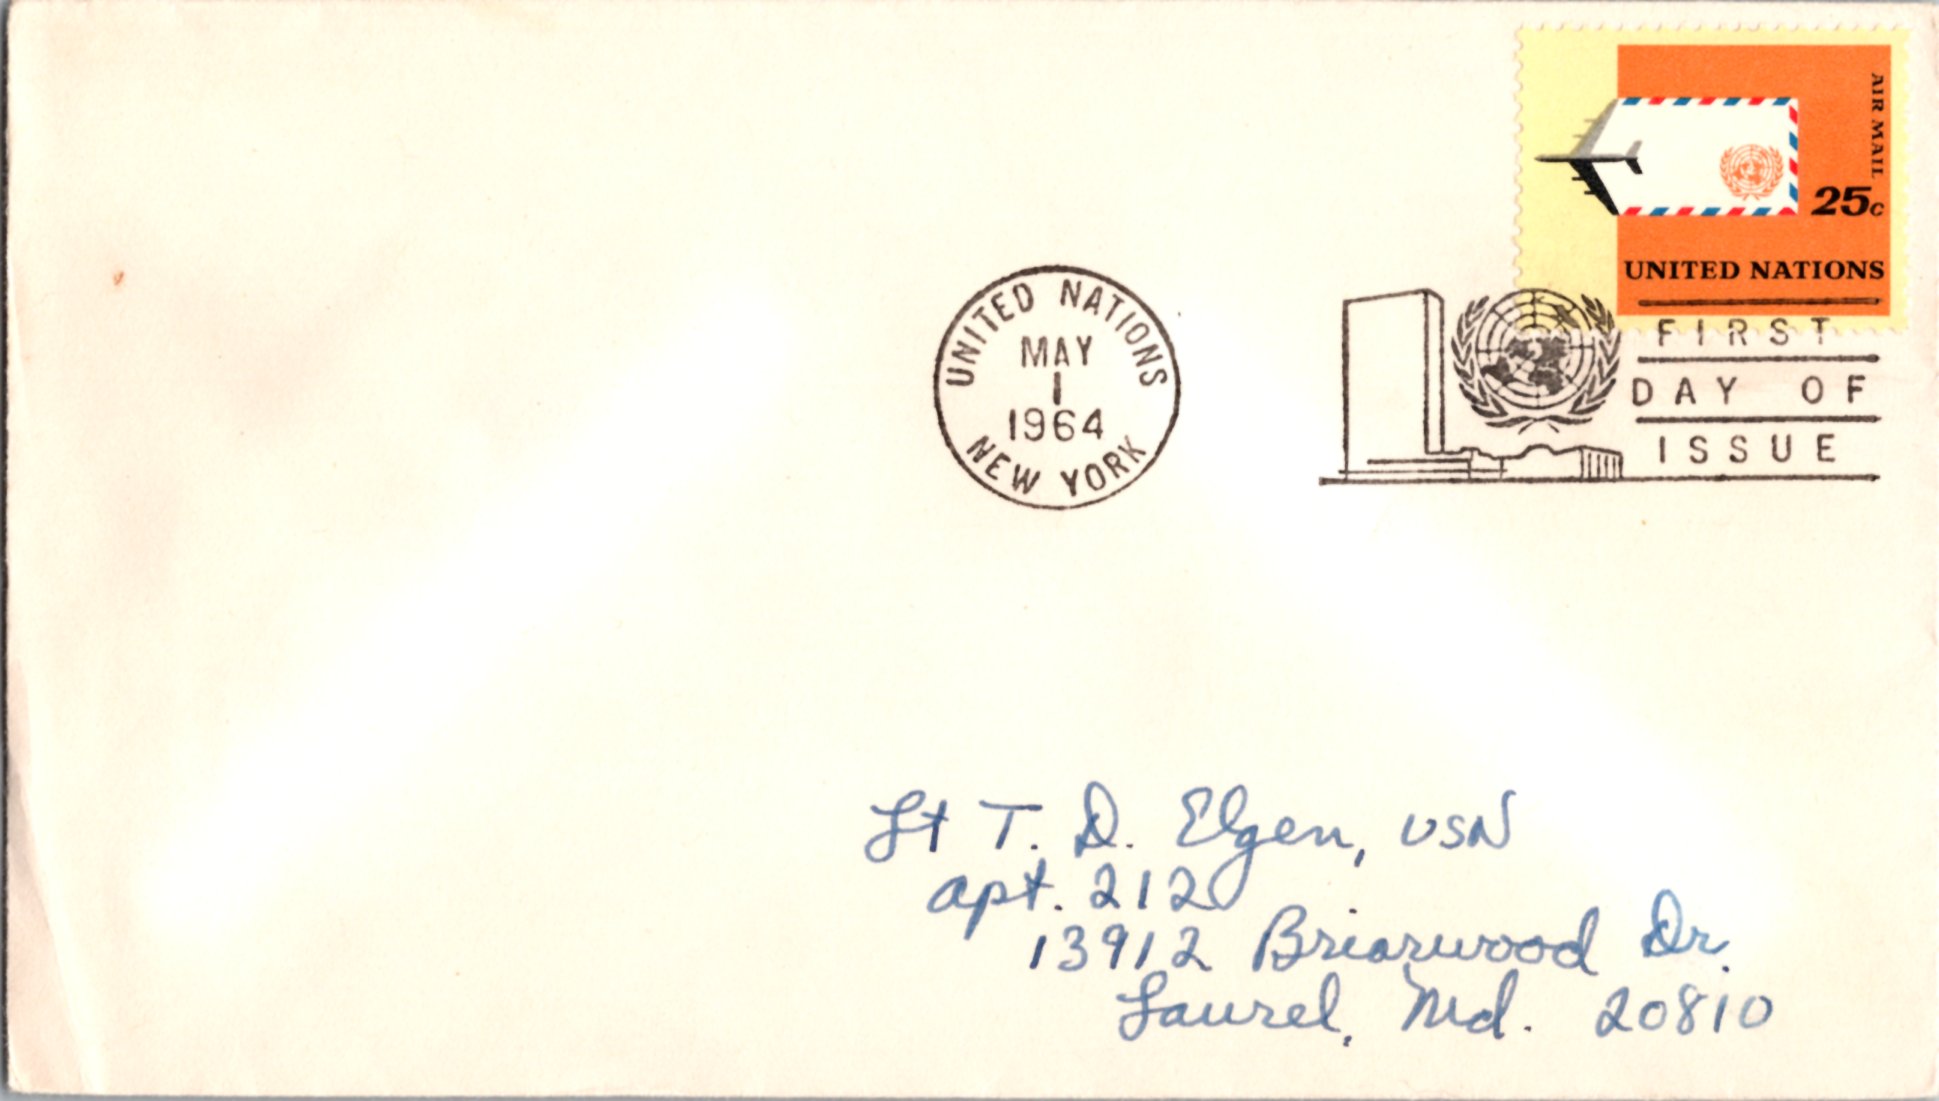 AIR MAIL
25c
UNITED NATIONS
UNITED NATIONS
MAY
1
1964
NEW YORK
FIRST
DAY OF
ISSUE
Lt T. D. Elgen, USN
apt. 212
13912 Briarwood Dr.
Laurel, Md. 20810